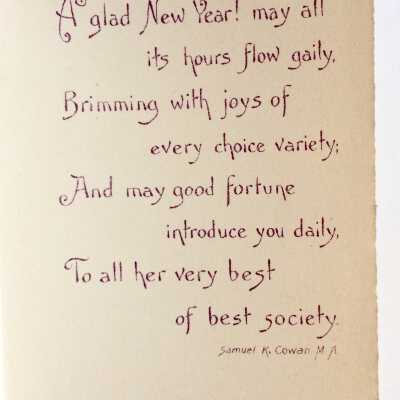 A glad New Year! may all
its hours flow gaily,
Brimming with joys of
every choice variety;
And may good fortune
introduce you daily,
To all her very best
of best society.
Samuel K. Cowan M.A.